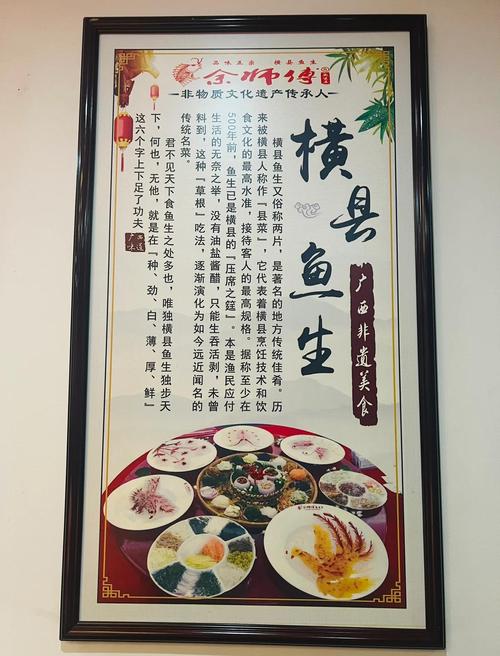 品味正宗 横县鱼生
余师傅
非物质文化遗产传承人
横县鱼生
广西非遗美食
横县鱼生又俗称两片，是著名的地方传统佳肴。历
来被横县人称作『县菜』，它代表着横县烹饪技术和饮
食文化的最高水准，接待客人的最高规格。据称至少在
500年前，鱼生已是横县的『压席之筵』。本是渔民应付
生活的无奈之举，没有油盐酱醋，只能生吞活剥，未曾
料到，这种『草根』吃法，逐渐演化为如今远近闻名的
传统名菜。
君不见天下食鱼生之处多也，唯独横县鱼生独步天
下，何也，无他，就是在『种、劲、白、薄、厚、鲜』
这六个字上下足了功夫